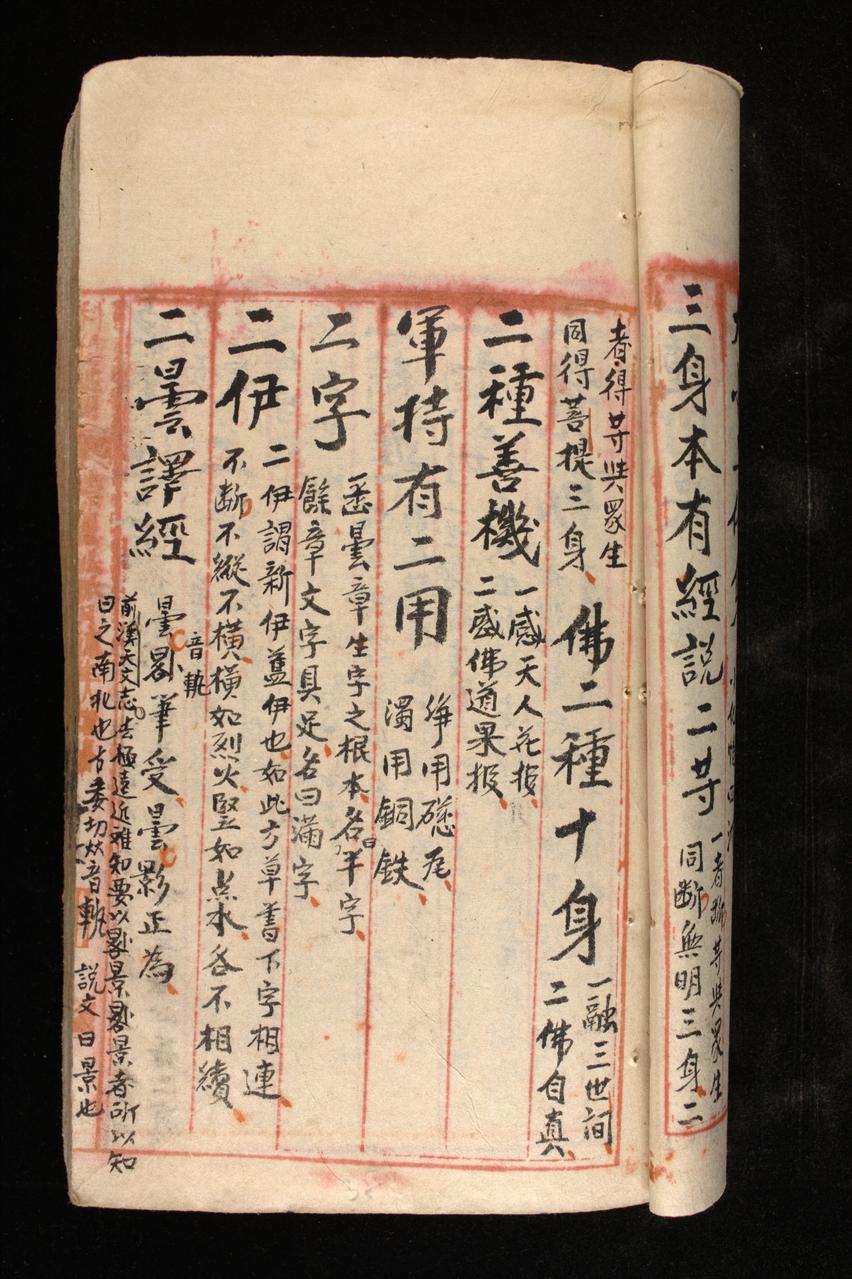 三身本有經說二等
一者断等與眾生
同断無明三身二
者得等與眾生
同得菩提三身
佛二種十身
一融三世間
二佛自真
二種善機
一感天人花报
二感佛道果报
軍持有二用
淨用磁瓦
濁用銅鉄
二字
悉曇章生字之根本名曰半字
餘章文字具足名曰滿字
二伊
二伊謂新伊舊伊也如此方草書下字相連
不断不縱不橫橫如烈火竪如点水各不相續
二曇譯經
音軌
曇晷筆受曇影正為
前漢天文志去極遠近难知要以晷景晷景者所以知
日之南北也古委切灰音軌 說文日景也